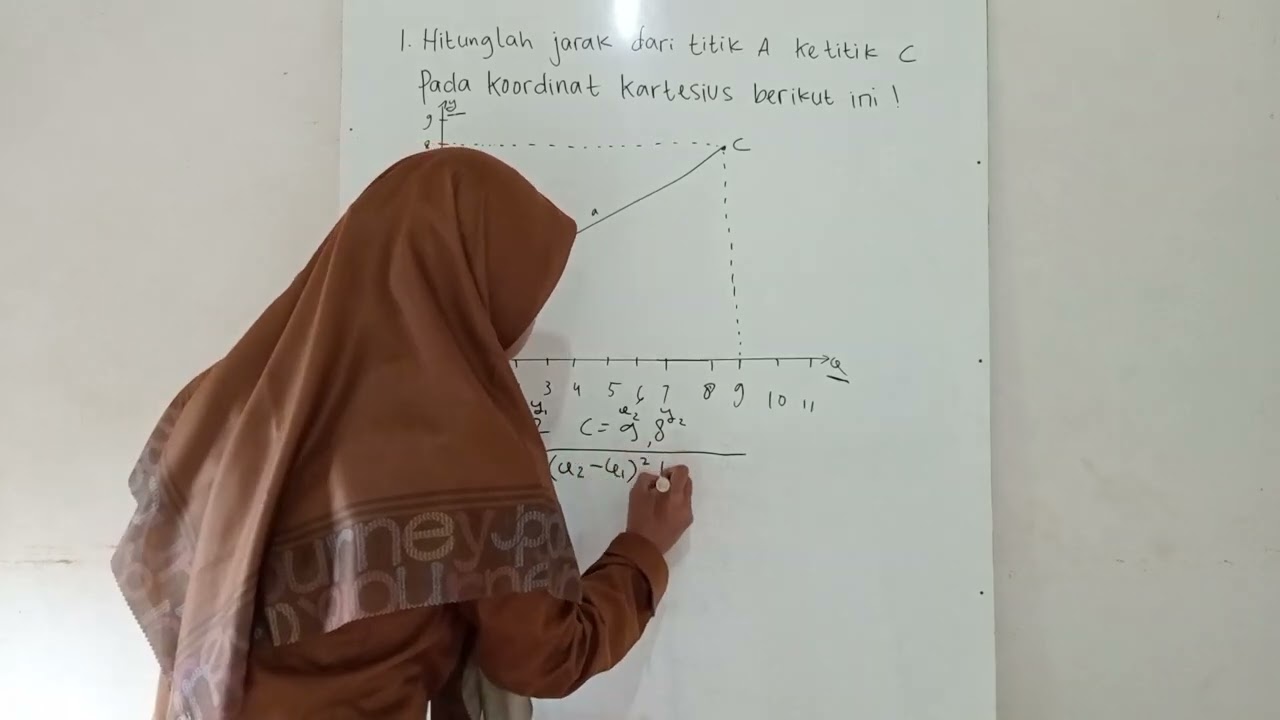 1. Hitunglah jarak dari titik A ketitik C
Pada koordinat kartesius berikut ini !
y
9
8
C
a
x
3 4 5 6 7 8 9 10 11
y₁ x₂ y₂
2 C = 9, 8
(x₂ - x₁)²
urney